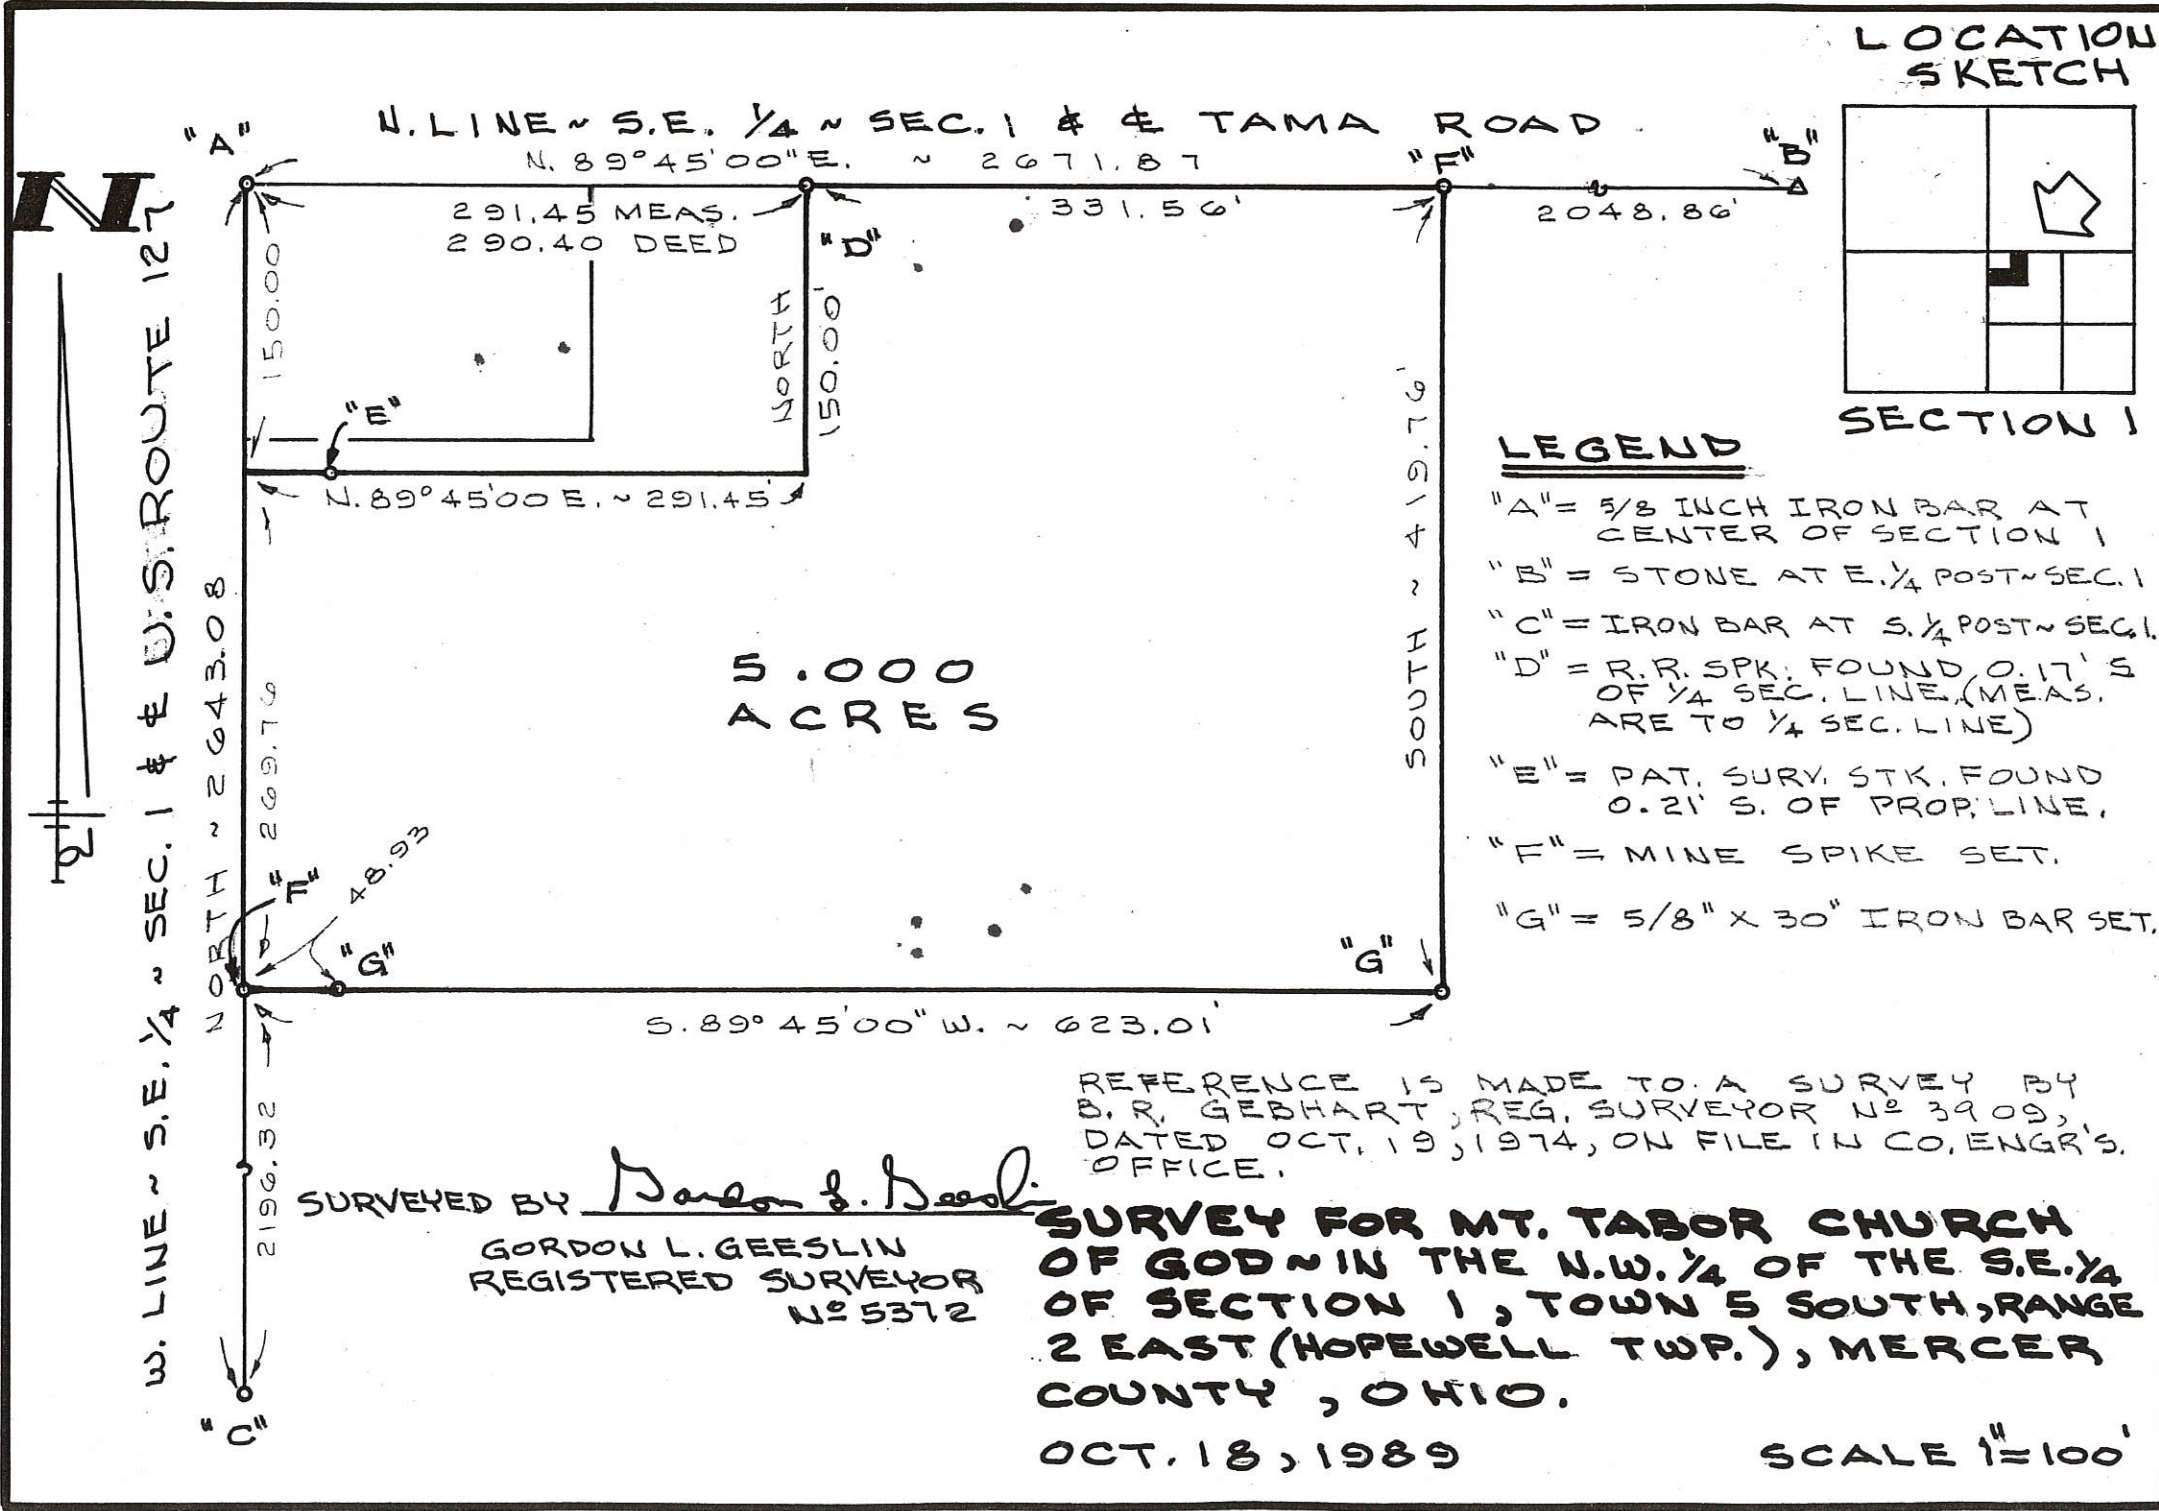 LOCATION
SKETCH
SECTION 1
N
N. LINE ~ S.E. 1/4 ~ SEC. 1 & ℄ TAMA ROAD
N. 89° 45' 00" E. ~ 2671.87
"A"
"F"
"B"
291.45 MEAS.
290.40 DEED
331.56'
2048.86'
"D"
150.00
NORTH
150.00'
"E"
N. 89° 45' 00 E. ~ 291.45'
SOUTH ~ 419.76'
W. LINE ~ S.E. 1/4 ~ SEC. 1 & ℄ U.S. ROUTE 127
NORTH ~ 2643.08
269.76
5.000
ACRES
"F"
48.93
"G"
"G"
S. 89° 45' 00" W. ~ 623.01'
2196.32
"C"
LEGEND
"A" = 5/8 INCH IRON BAR AT
CENTER OF SECTION 1
"B" = STONE AT E. 1/4 POST ~ SEC. 1
"C" = IRON BAR AT S. 1/4 POST ~ SEC. 1.
"D" = R.R. SPK. FOUND 0.17' S
OF 1/4 SEC. LINE. (MEAS.
ARE TO 1/4 SEC. LINE)
"E" = PAT. SURV. STK. FOUND
0.21' S. OF PROP. LINE.
"F" = MINE SPIKE SET.
"G" = 5/8" X 30" IRON BAR SET.
REFERENCE IS MADE TO A SURVEY BY
B. R. GEBHART, REG. SURVEYOR Nº 3909,
DATED OCT. 19, 1974, ON FILE IN CO. ENGR'S.
OFFICE.
SURVEYED BY Gordon L. Geeslin
GORDON L. GEESLIN
REGISTERED SURVEYOR
Nº 5372
SURVEY FOR MT. TABOR CHURCH
OF GOD ~ IN THE N.W. 1/4 OF THE S.E. 1/4
OF SECTION 1, TOWN 5 SOUTH, RANGE
2 EAST (HOPEWELL TWP.), MERCER
COUNTY, OHIO.
OCT. 18, 1989
SCALE 1" = 100'